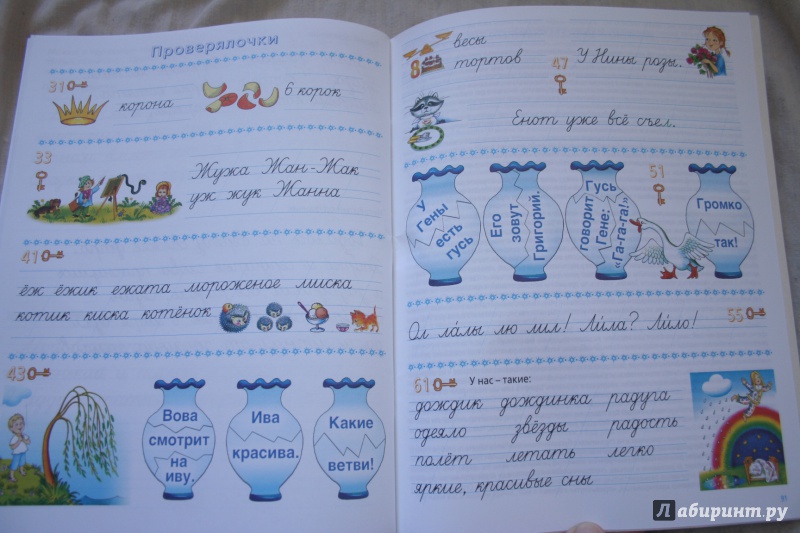 Проверялочки
31
корона
6 корок
33
Жужа Жан-Жак
уж жук Жанна
41
ёж ёжик ежата мороженое миска
котик киска котёнок
43
Вова
смотрит
на
иву.
Ива
красива.
Какие
ветви!
весы
8
тортов
47
У Нины розы.
Енот уже всё съел.
51
У
Гены
есть
гусь
Его
зовут
Григорий.
Гусь
говорит
Гене:
«Га-га-га!»
Громко
так!
Ол ла́лы лю лил! Ли́ла? Ли́ло!
55
61
У нас – такие:
дождик дождинка радуга
одеяло звёзды радость
полёт летать легко
яркие, красивые сны
Лабиринт.ру